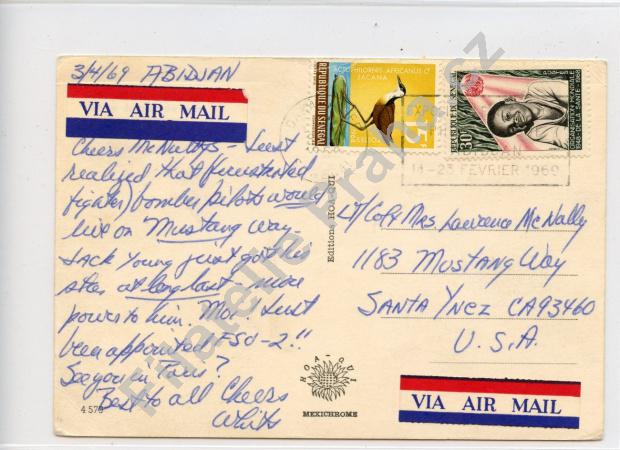 3/4/69 ABIDJAN
VIA AIR MAIL
Cheers McNallys - Just
realized that frustrated
fighter/bomber pilots would
live on Mustang Way -
Jack Young just got his
star at long last - more
power to him. Moi - Just
been appointed FSO-2!!
See you in Paris?
Best to all Cheers
4 579
REPUBLIQUE DU SENEGAL
ACTOPHILORNIS AFRICANUS
JACANA
ORGANISATION MONDIALE
DE LA SANTE
1948-1968
30F
ABIDJAN
14-23 FEVRIER 1969
Editions HOA-QUI
Lt/Col & Mrs Lawrence McNally
1183 Mustang Way
SANTA YNEZ CA 93460
U.S.A.
HOA-QUI
MEXICHROME
VIA AIR MAIL
Filatelie Praha.cz